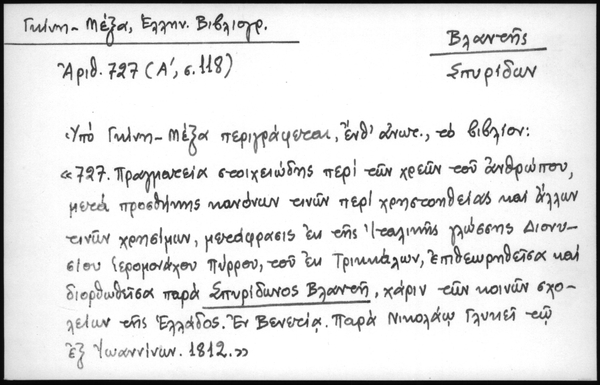 Γκίνη - Μέξα, Ἑλλην. Βιβλιογρ.
Βλαντῆς
Σπυρίδων
Ἀριθ. 727 (Α΄, σ. 118)
Ὑπό Γκίνη - Μέξα περιγράφεται, ἔνθ' ἀνωτ., τό βιβλίον:
«727. Πραγματεία στοιχειώδης περί τῶν χρεῶν τοῦ ἀνθρώπου,
μετά προσθήκης κανόνων τινῶν περί χρηστοηθείας καί ἄλλων
τινῶν χρησίμων, μετάφρασις ἐκ τῆς Ἰταλικῆς γλώσσης Διονυ-
σίου Ἱερομονάχου Πύρρου, τοῦ ἐκ Τρικκάλων, ἐπιθεωρηθεῖσα καί
διορθωθεῖσα παρά Σπυρίδωνος Βλαντῆ, χάριν τῶν κοινῶν σχο-
λείων τῆς Ἑλλάδος. Ἐν Βενετίᾳ. Παρά Νικολάῳ Γλυκεῖ τῷ
ἐξ Ἰωαννίνων. 1812.»